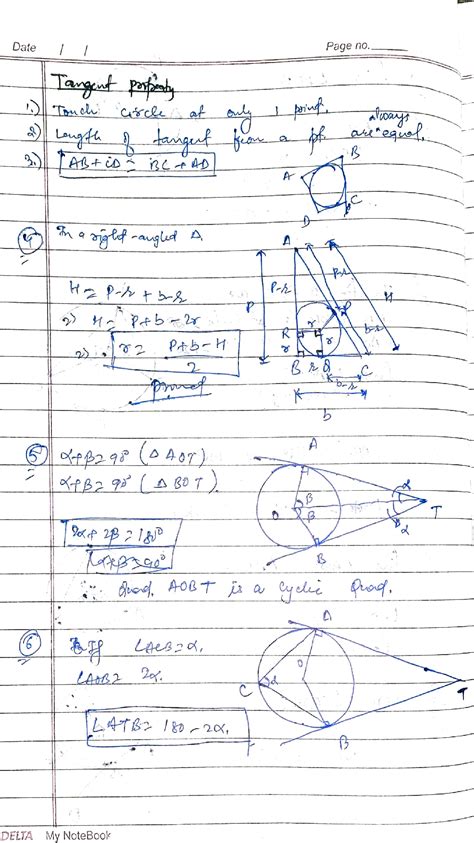 Date / / Page no.
Tangent property
1.) Touch circle at only 1 point.
2) Length of tangent from a pt. are always equal.
3.) AB + CD = BC + AD
A B C D
4 In a right-angled Δ.
H = P-r + b-r
H = P+b-2r
r = P+b-H / 2
proved
A P P-r P-r H R r r r P b-r B r Q C b-r b
5 α+β=90° (Δ AOT)
α+β=90° (Δ BOT).
2α+2β=180°
α+β=90°
∴ Quad. AOBT is a cyclic Quad.
A O β β α α T B
6 If ∠ACB=α.
∠AOB= 2α.
∠ATB= 180-2α.
A O C α B T
DELTA My NoteBook